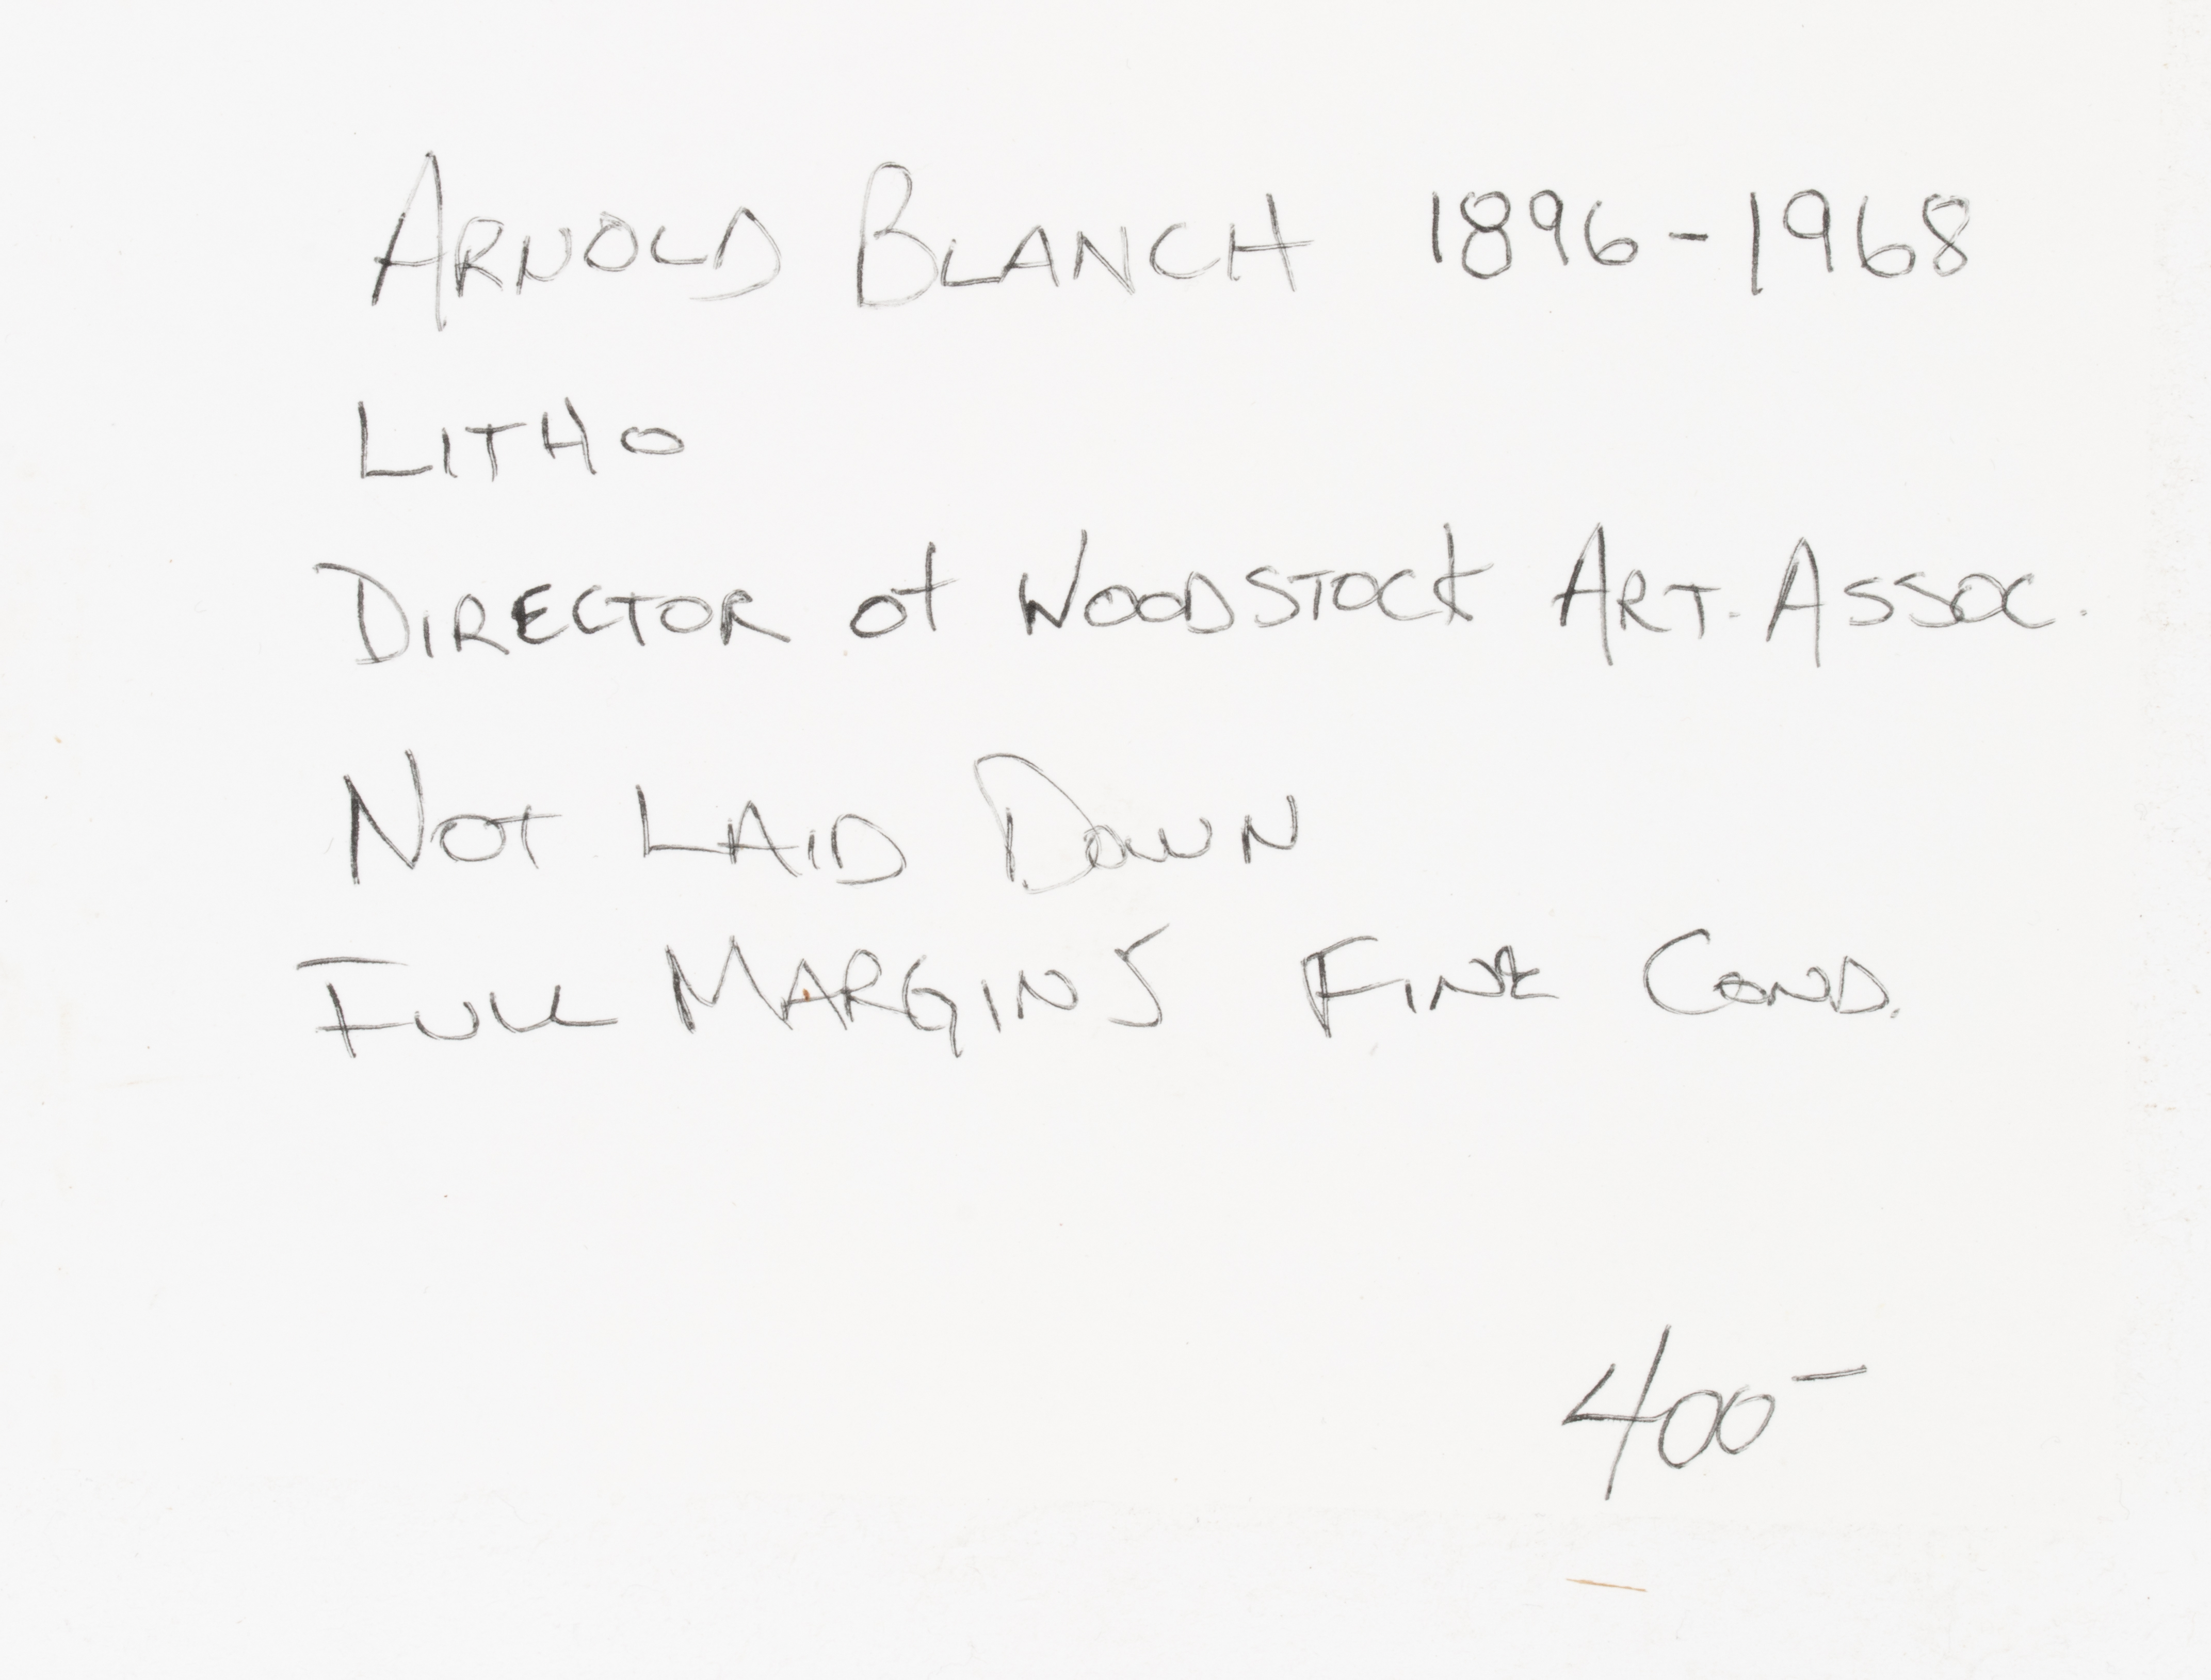 ARNOLD BLANCH 1896-1968
LITHO
DIRECTOR of WOODSTOCK ART. ASSOC.
NOT LAID DOWN
FULL MARGINS FINE COND.
400-